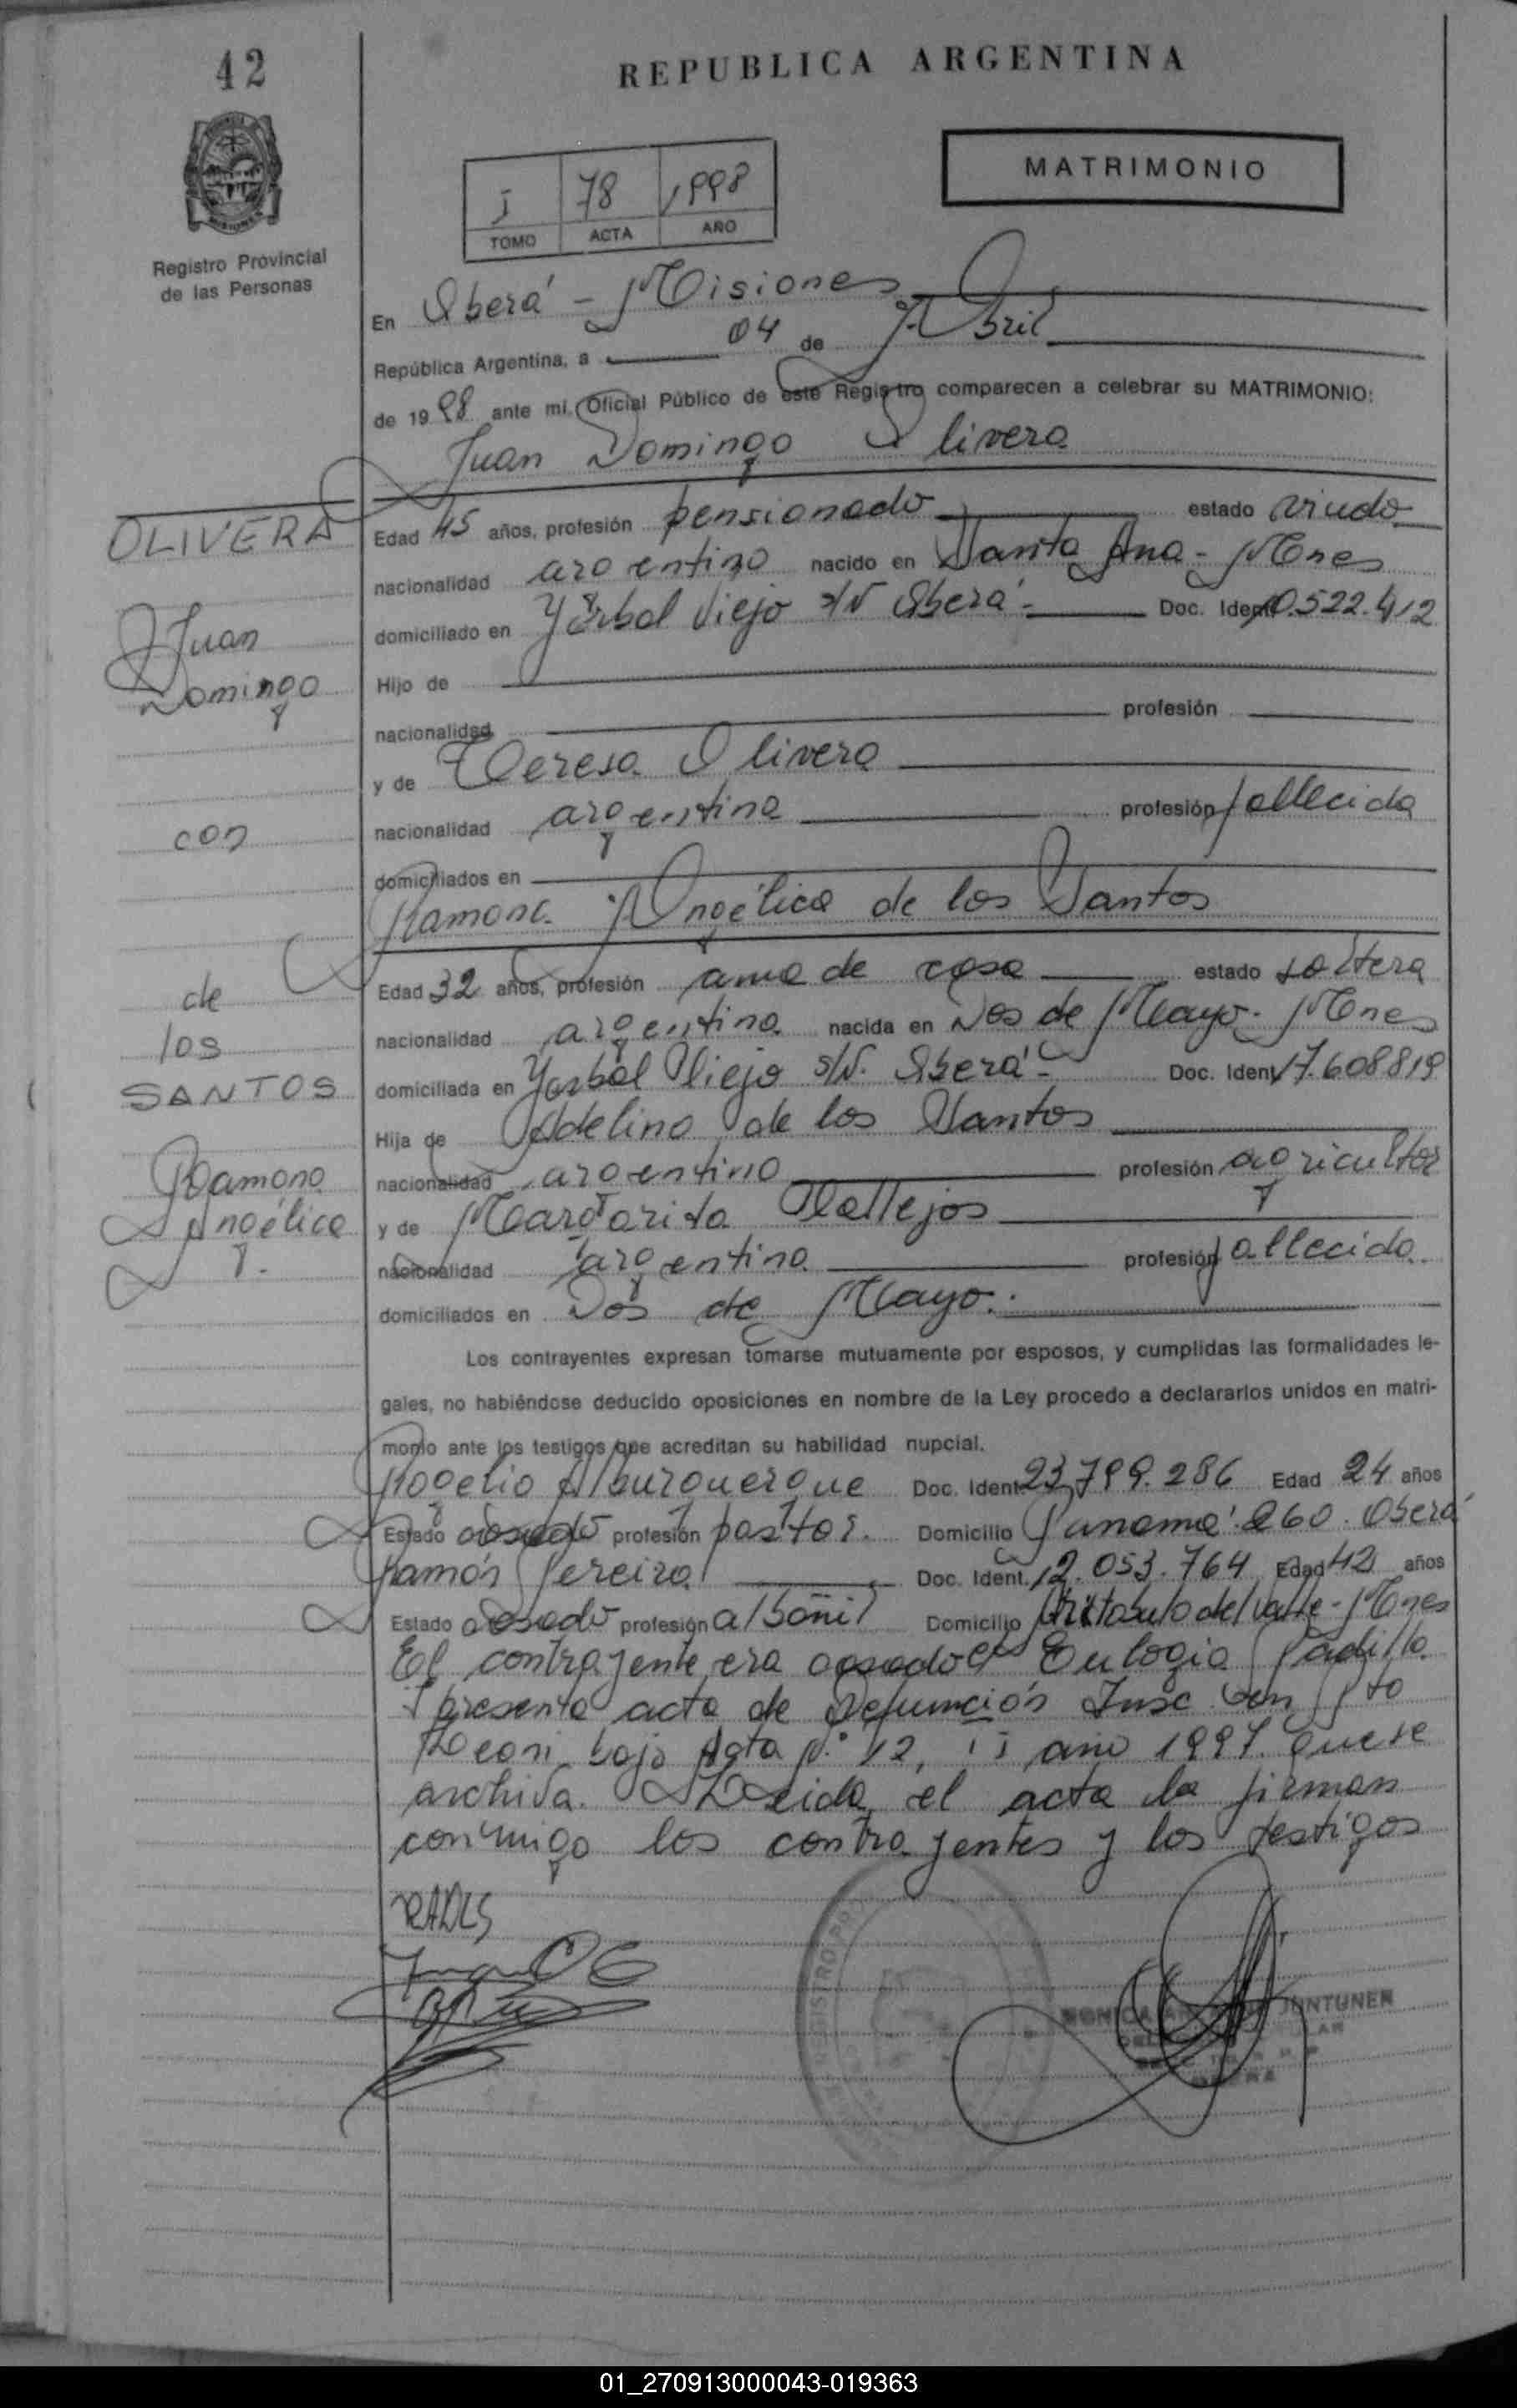 42
REPUBLICA ARGENTINA
MATRIMONIO
I 78 1998
TOMO ACTA AÑO
Registro Provincial
de las Personas
En Oberá - Misiones
República Argentina, a 04 de Abril
de 1998 ante mi, Oficial Público de este Registro comparecen a celebrar su MATRIMONIO:
Juan Domingo Olivera
OLIVERA
Juan
Domingo
con
de
los
SANTOS
Ramona
Angélica
Edad 45 años, profesión pensionado estado viudo
nacionalidad argentino nacido en Santa Ana - Mnes
domiciliado en Yerbal Viejo s/N Oberá - Doc. Ident. 10.522.412
Hijo de
nacionalidad profesión
y de Teresa Olivera
nacionalidad argentina profesión fallecida
domiciliados en
Ramona Angélica de los Santos
Edad 32 años, profesión ama de casa estado soltera
nacionalidad argentina nacida en Dos de Mayo - Mnes
domiciliada en Yerbal Viejo s/N. Oberá - Doc. Ident. 17.608819
Hija de Adelino de los Santos
nacionalidad argentino profesión agricultor
y de Margarita Vallejos
nacionalidad argentina profesión fallecida
domiciliados en Dos de Mayo.
Los contrayentes expresan tomarse mutuamente por esposos, y cumplidas las formalidades le-
gales, no habiéndose deducido oposiciones en nombre de la Ley procedo a declararlos unidos en matri-
monio ante los testigos que acreditan su habilidad nupcial.
Rogelio Alburquerque Doc. Ident. 23.799.286 Edad 24 años
Estado casado profesión pastor. Domicilio Panamá 260. Oberá
Ramón Pereira Doc. Ident. 12.053.764 Edad 42 años
Estado casado profesión albañil Domicilio Aristobulo del Valle - Mnes
El contrayente era casado c/ Eulogia Padilla
presenta acta de Defunción Insc. en Pto
Leoni bajo Acta N.° 12, año 1997. Que se
archiva. Leida el acta la firman
conmigo los contrayentes y los testigos
RADLS
REGISTRO PRO
JUNTUNEN
01_270913000043-019363